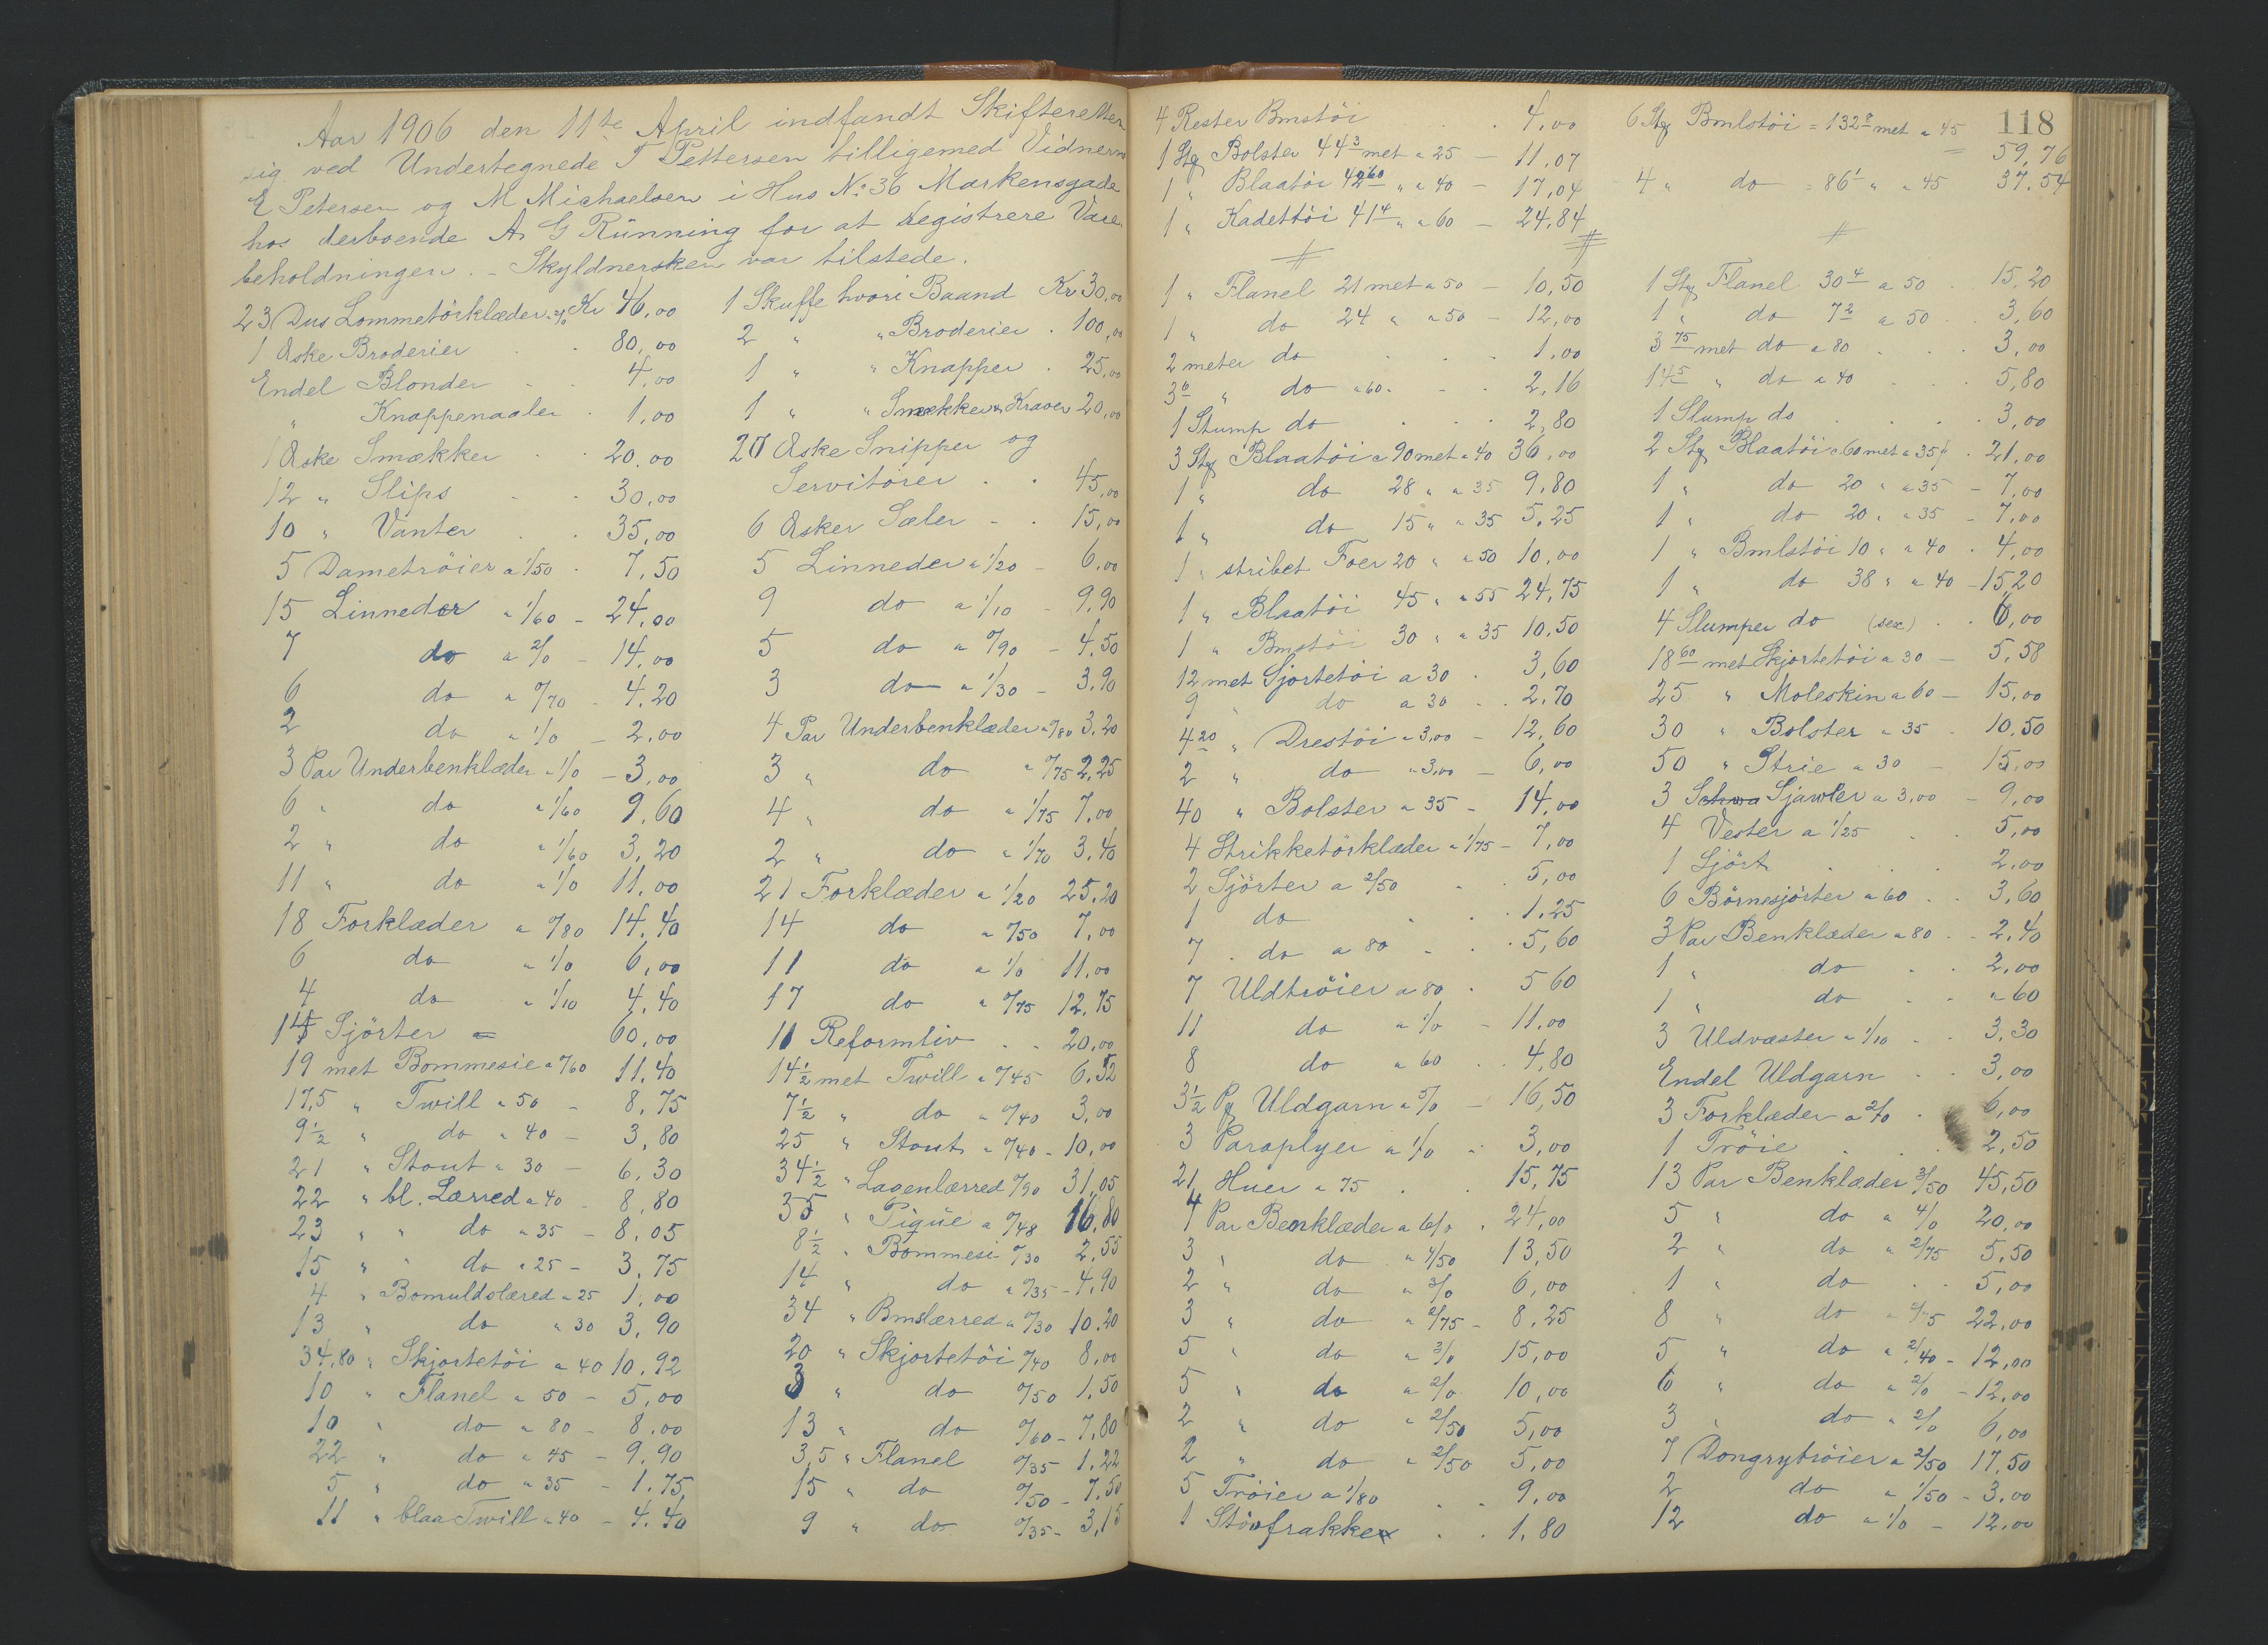 Aar 1906 den 11te April indfandt Skifteretten
sig ved Undertegnede T Pettersen tilligemed Vidnerne
E Petersen og M Michaelsen i Hus No 36 Markensgade
hos derboende A G Rünning for at Registrere Vare
beholdningen. - Skyldnersken var tilstede.
23 Dus Lommetörklæder a 2/0 Kr 46,00
1 Æske Broderier 80,00
Endel Blonder 4,00
" Knappenaaler 1,00
1 Æske Smækker 20,00
12 " Slips 30,00
10 " Vanter 35,00
5 Dametröier a 1/50 7,50
15 Linneder a 1/60 - 24,00
7 do a 2/0 - 14,00
6 do a 0/70 - 4,20
2 do a 1/0 - 2,00
3 Par Underbenklæder a 1/0 - 3,00
6 " do a 1/60 9,60
2 " do a 1/60 3,20
11 " do a 1/0 11,00
18 Forklæder a 0/80 14,40
6 do a 1/0 6,00
4 do a 1/10 4,40
15 Sjörter = 60,00
19 met Bommesie a 0/60 11,40
17,5 " Twill a 50 - 8,75
9 1/2 " do a 40 - 3,80
21 " Stout a 30 - 6,30
22 " bl. Lærred a 40 - 8,80
23 " " do a 35 - 8,05
15 " " do a 25 - 3,75
4 " Bomuldslæred a 25 1,00
13 " do a 30 3,90
34,80 " Skjortetöi a 40 10,92
10 " Flanel a 50 - 5,00
10 " do a 80 - 8,00
22 " do a 45 - 9,90
5 " do a 35 - 1,75
11 " blaa Twill a 40 - 4,40
1 Skuffe hvori Baand Kr 30,00
2 " " Broderier . 100,00
1 " " Knapper . 25,00
1 " " Smækker & Kraver 20,00
20 Æske Snipper og
Servitörer . . 45,00
6 Æsker Sæler - . 15,00
5 Linneder a 1/20 - 6,00
9 do a 1/10 - 9,90
5 do a 0/90 - 4,50
3 do a 1/30 - 3,90
4 Par Underbenklæder a 0/80 3,20
3 " do a 0/75 2,25
4 " do a 1/75 7,00
2 " do a 1/70 3,40
21 Forklæder a 1/20 25,20
14 do a 0/50 7,00
11 do a 1/0 11,00
17 do a 0/75 12,75
11 Reformliv . . 20,00
14 1/2 met Twill a 0/45 6,52
7 1/2 " do a 0/40 3,00
25 " Stout a 0/40 - 10,00
34 1/2 " Lagenlærred 0/90 31,05
35 " Piqüe a 0/48 16,80
8 1/2 " Bommesi 0/30 2,55
14 " do a 0/35 - 4,90
34 " Bmslærred a 0/30 10,20
20 " Skjortetöi 0/40 8,00
3 " do 0/50 1,50
13 " do 0/60 - 7,80
3,5 " Flanel 0/35 1,22
15 " do 0/50 - 7,50
9 " do 0/35 - 3,15
4 Rester Bmstöi . 4,00
1 Stg Bolster 44 3 met a 25 - 11,07
1 " Blaatöi 42 60 " a 40 - 17,04
1 " Kadettöi 41 4 " a 60 - 24,84
1 " Flanel 21 met a 50 - 10,50
1 " do 24 " a 50 - 12,00
2 meter do . . . 1,00
3 6 " do a 60 . - . 2,16
1 Stump do . . . 2,80
3 Stg Blaatöi a 90 met a 40 36,00
1 " do 28 " a 35 9,80
1 " do 15 " a 35 5,25
1 " stribet Foer 20 " a 50 10,00
1 " Blaatöi 45 " a 55 24,75
1 " Bmstöi 30 " a 35 10,50
12 met Sjortetöi a 30 . 3,60
9 " do a 30 . . 2,70
4 20 " Drestöi a 3,00 - 12,60
2 " do a 3,00 - 6,00
40 " Bolster a 35 - 14,00
4 Strikketörklæder a 1/75 - 7,00
2 Sjörter a 2/50 . . 5,00
1 do . . . 1,25
7 . do a 80 . . . 5,60
7 Uldtröier a 80 . 5 60
11 do a 1/0 - 11,00
8 do a 60 . . 4,80
3 1/2 Pg Uldgarn a 5/0 - 16,50
3 Paraplyer a 1/0 . 3,00
21 Huer a 75 . . 15,75
4 Par Benklæder a 6/0 . 24,00
3 " do a 4/50 13,50
2 " do a 3/0 6,00
3 " do a 2/75 - 8,25
5 " do a 3/0 15,00
5 " do a 2/0 10,00
2 " do a 2/50 5,00
2 " do a 2/50 5,00
5 Tröier a 1/80 . . 9,00
1 Stövfrakke . . 1,80
118
6 Stg Bmlstöi = 132 8 met a 45
59,76
4 " do = 86 1 " a 45 37,54
1 Stg Flanel 30 4 a 50 . 15,20
1 " do 7 2 a 50 . . 3,60
3 75 met do a 80 . . . 3,00
14 5 " do a 40 . . . 5,80
1 Slump do . . . . 3,00
2 Stg Blaatöi a 60 met a 35 . 21,00
1 " do 20 " a 35 - 7,00
1 " do 20 " a 35 - 7,00
1 " Bmlstöi 10 " a 40 . 4,00
1 " do 38 " a 40 - 15,20
4 Slumper do (sex) . . 6,00
18 60 met Skjortetöi a 30 - 5,58
25 " Moleskin a 60 - 15,00
30 " Bolster a 35 . 10,50
50 " Strie a 30 - 15,00
3 Sjawler a 3,00 - 9,00
4 Vester a 1/25 . . 5,00
1 Sjört . . . 2,00
6 Börnesjörter a 60 . . 3,60
3 Par Benklæder a 80 . . 2,40
1 " do . . 2,00
1 " do . . " 60
3 Uldvæster a 1/10 . . 3,30
Endel Uldgarn . . 3,00
3 Forklæder a 2/0 . 6,00
1 Tröie . . . 2,50
13 Par Benklæder 3/50 45,50
5 " do a 4/0 20,00
2 " do a 2/75 5,50
1 " do . . 5,00
8 " do a 2/75 22,00
5 " do a 2/40 - 12,00
6 " do a 2/0 - 12,00
3 " do a 2/0 6,00
7 Dongrytröier a 2/50 17,50
2 do a 1/50 - 3,00
12 do a 1/0 - 12,00